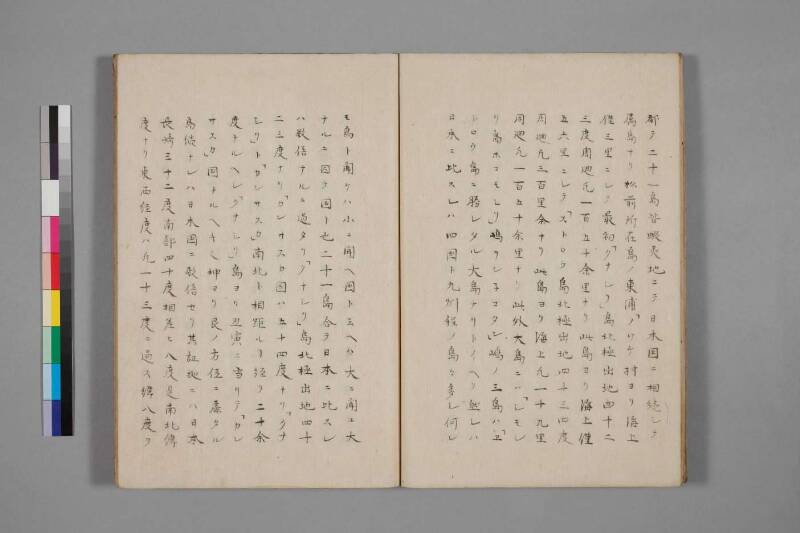 都テ二十一島皆蝦夷地ニテ日本国ニ相続シテ
属島ナリ松前所在島ノ東浦「ノツケ」村ヨリ海上
僅三里ニシテ最初「クナシリ」島北極出地四十二
三度周廻凡一百五十余里ナリ此島ヨリ海上僅
五六里ニシテ「ヱトロウ」島北極出地四十三四度
周廻凡三百里余ナリ此島ヨリ海上凡一十九里
周廻凡一百五十余里ナリ此外大島ニハ「シモシ
リ」島「ホロモシリ」嶋「ラシヨコタン」嶋ノ三島ハ「ヱ
トロウ」島ニ勝レタル大島ナリトイヘリ然レハ
日本ニ比スレハ四国ト九州程ノ島々多シ何レ
モ島ト聞ケハ小ニ聞ヘ国ト云ヘハ大ニ聞ユ大
ナルニ因テ国ト也二十一島合テ日本ニ比スレ
ハ数倍ナルニ道タリ「クナシリ」島北極出地四十
二三度ナリ「カンサスカ」国ハ五十四度ナリ「クナ
シリ」ト「カンサスカ」南北ト相距ル事経テ二十余
度ナルヘシ「クナシリ」島ヨリ丑寅ニ当リテ「カン
サスカ」国ナルヘキ歟卯ヨリ艮ノ方位ニ蟠タル
島続ナレハ日本国ニ数倍セリ其証拠ニハ日本
長崎三十二度南部四十度相差ヒ八度是南北緯
度ナリ東西経度ハ凡一十三度ニ過ス緯八度ヲ